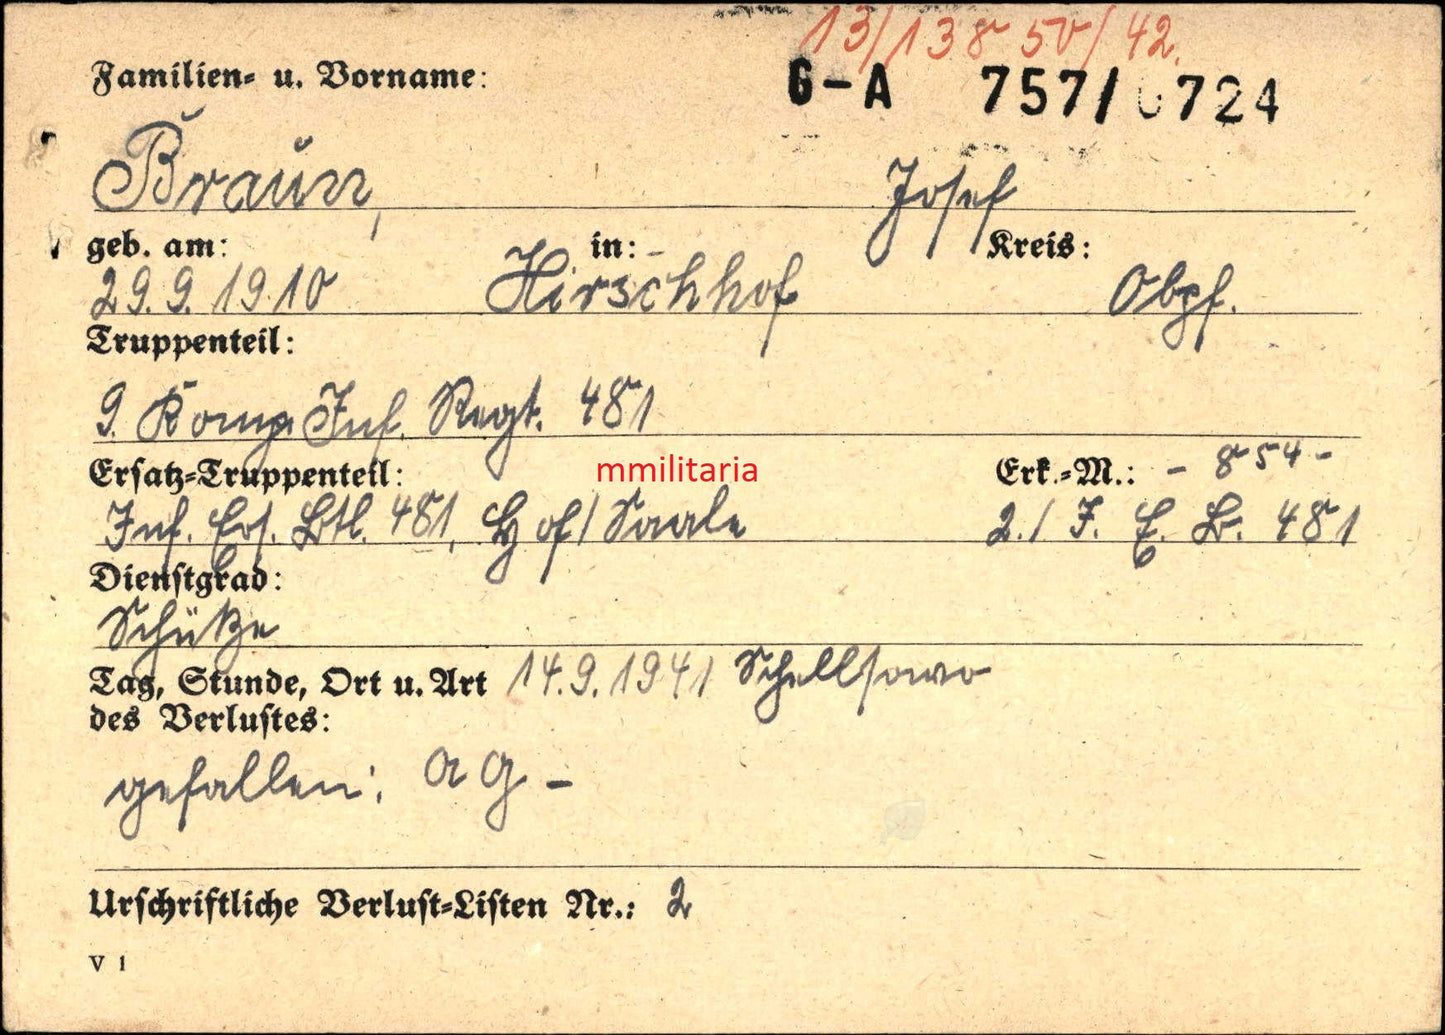 13/13850/42.
Familien- u. Vorname:
G-A 757/0724
Braun, Josef
geb. am: in: Kreis:
29.9.1910 Hirschhof Obpf.
Truppenteil:
9. Komp. Inf. Regt. 481
Ersatz-Truppenteil: mmilitaria Erk.-M.: - 854 -
Inf. Ers. Btl. 481, Hof/Saale 2./ I. E. B. 481
Dienstgrad:
Schütze
Tag, Stunde, Ort u. Art 14.9.1941 Schellsowo
des Verlustes:
gefallen: AG -
Urschriftliche Verlust-Listen Nr.: 2
V 1